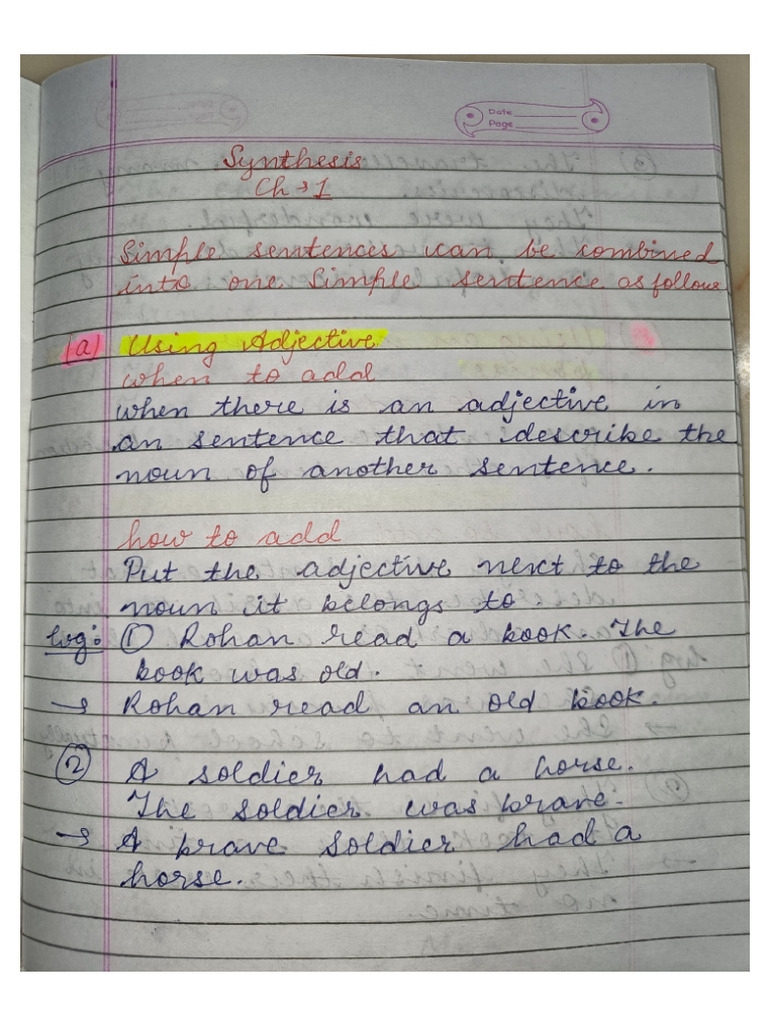 Date
Page
Synthesis
Ch → 1
Simple sentences can be combined
into one simple sentence as follows
(a) Using Adjective
when to add
when there is an adjective in
an sentence that describe the
noun of another sentence.
how to add
Put the adjective next to the
noun it belongs to
eg: ① Rohan read a book. The
book was old.
→ Rohan read an old book.
② A soldier had a horse.
The soldier was brave.
→ A brave soldier had a
horse.